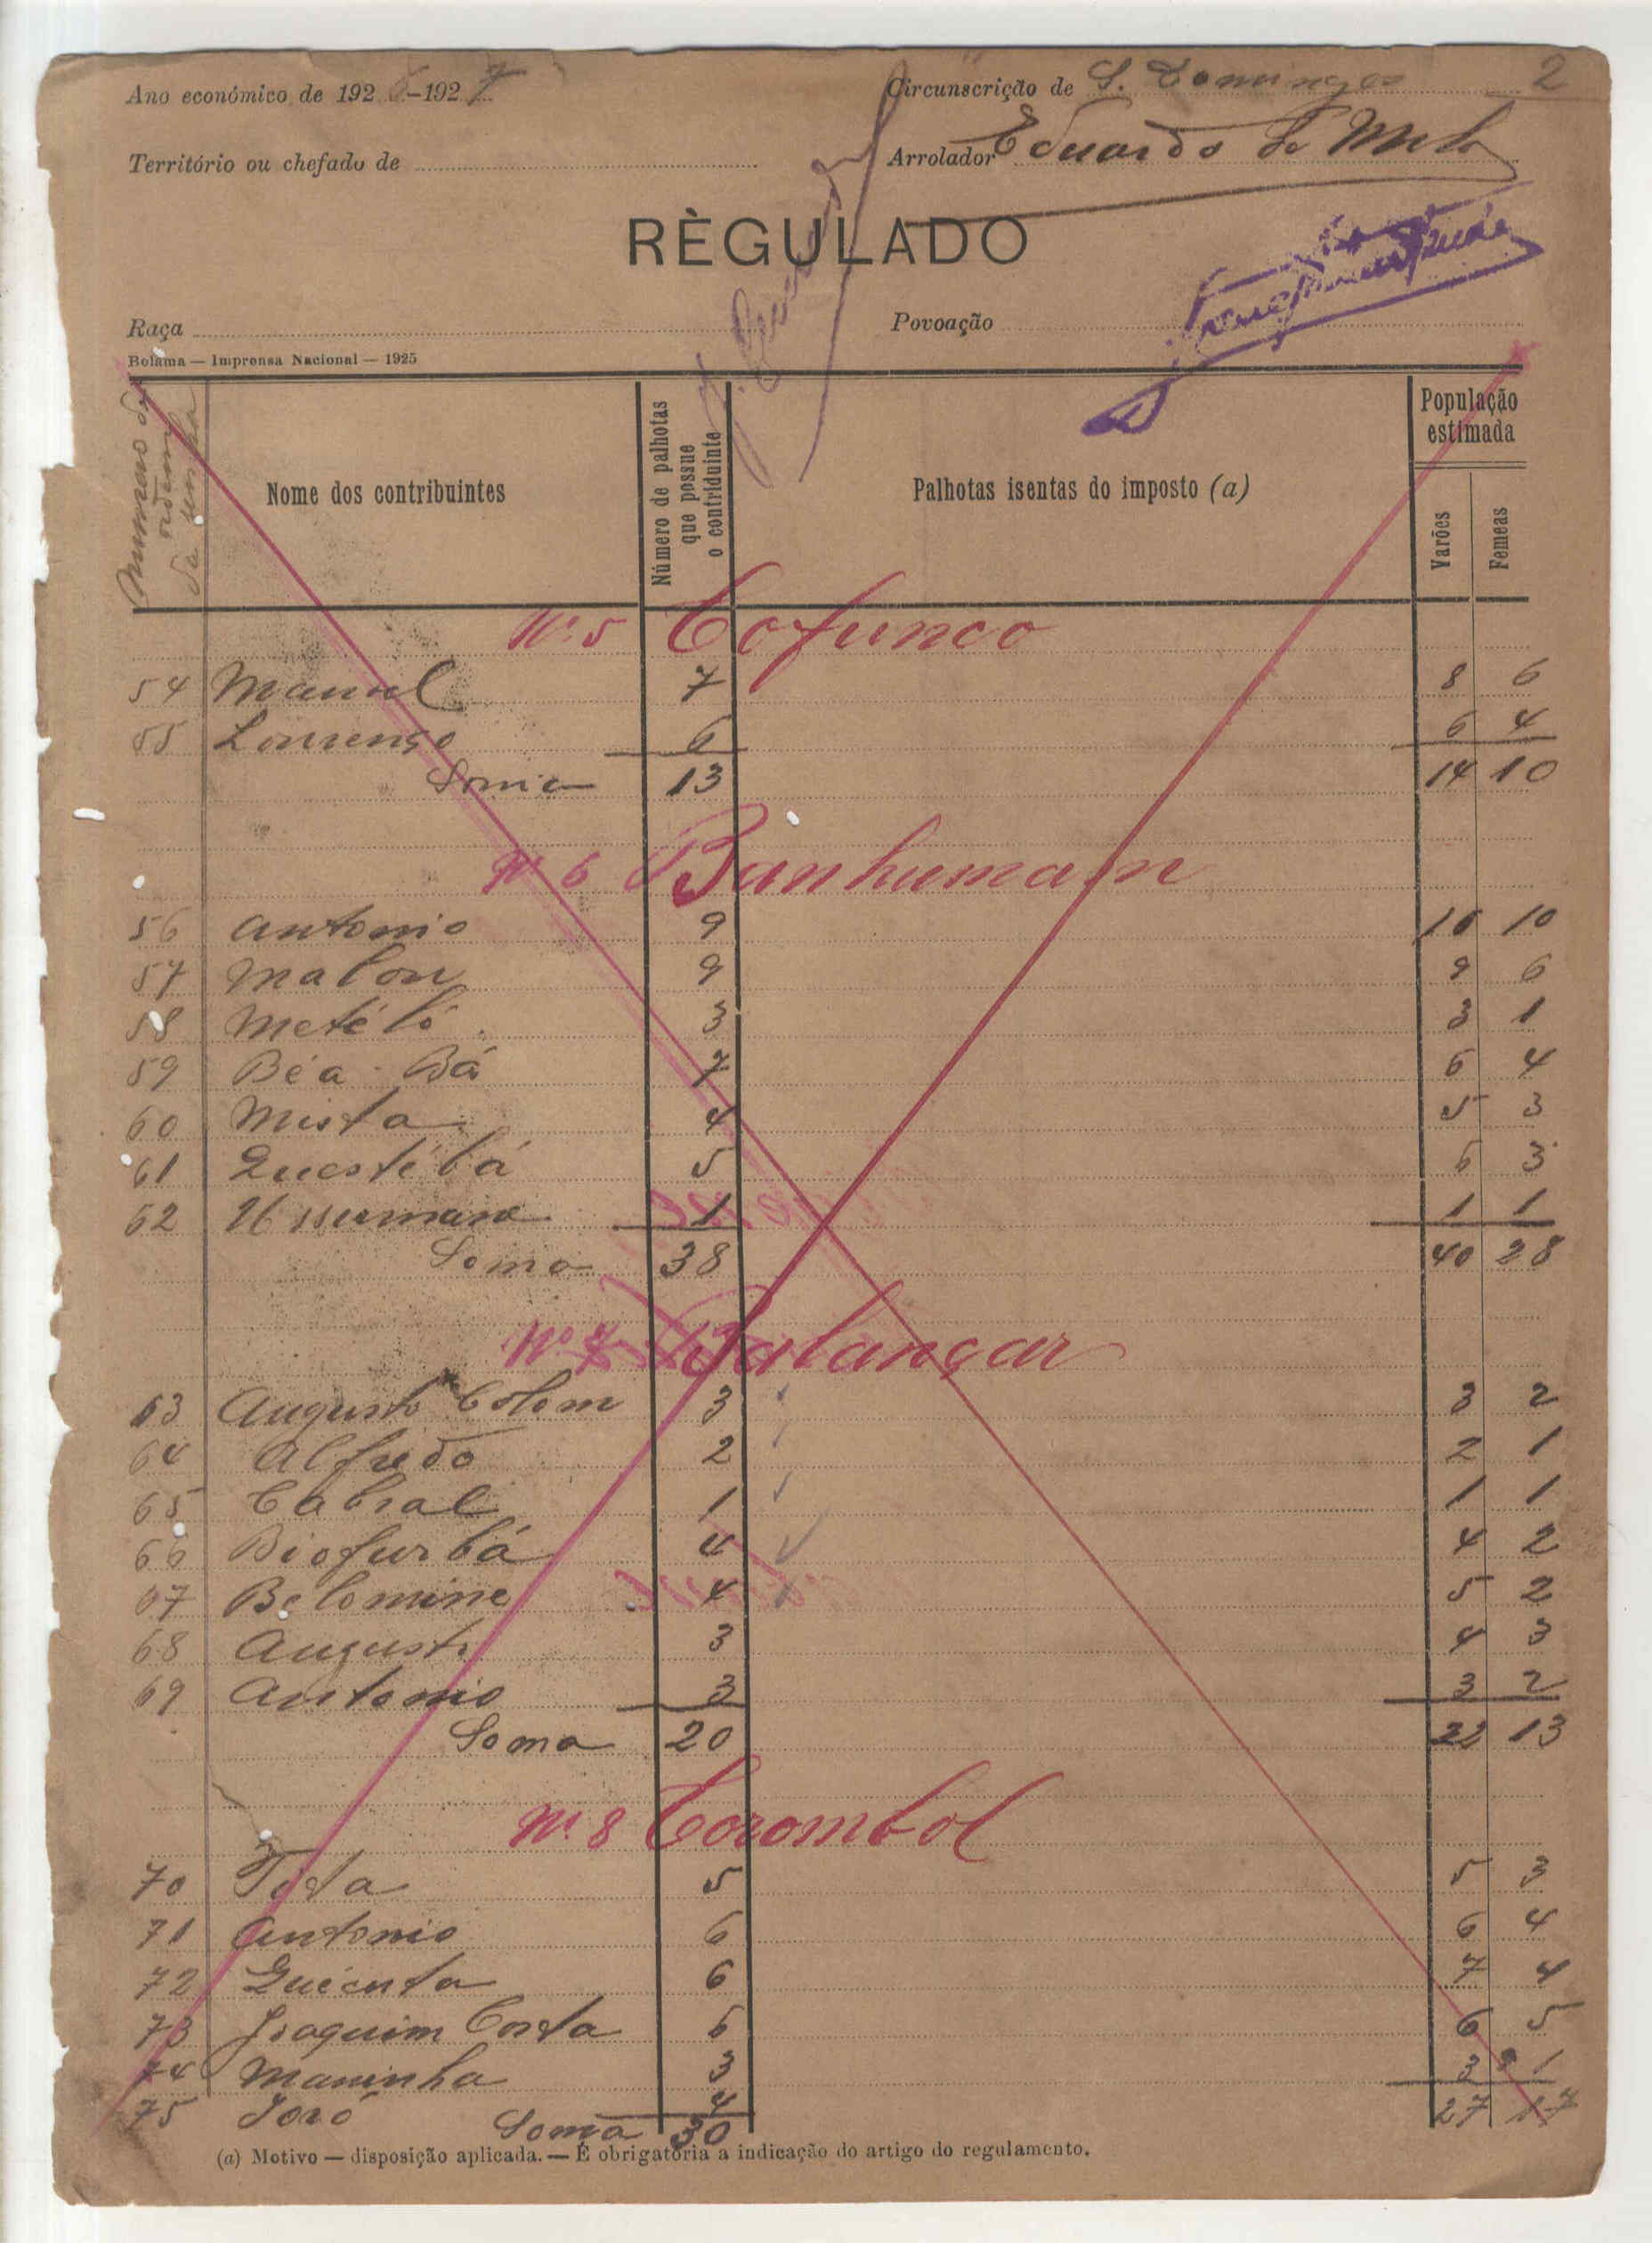 Ano económico de 1926-1927 Circunscrição de S. Domingos 2
Território ou chefado de Arrolador Eduardo de Melo
RÈGULADO
Raça Povoação
Bolama — Imprensa Nacional — 1925
Numero de ordem da senha
Nome dos contribuintes
Número de palhotas que possue o contriduinte
Palhotas isentas do imposto (a)
População estimada
Varões Femeas
Nº 5 Cofunco
54 Manuel 7 8 6
55 Lourenço 6 6 4
Soma 13 14 10
Nº 6 Banhumam
56 Antonio 9 10 10
57 Malon 9 9 6
58 Metéló 3 3 1
59 Béa-Bá 7 6 4
60 Mista 4 5 3
61 Questébá 5 6 3
62 Ussumane 1 1 1
Soma 38 40 28
Nº 7 Balançar
63 Augusto Colom 3 3 2
64 Alfredo 2 2 1
65 Cabral 1 1 1
66 Biofurbá 4 4 2
67 Belomine 4 5 2
68 Augusto 3 4 3
69 Antonio 3 3 2
Soma 20 22 13
Nº 8 Corombol
70 Tista 5 5 3
71 Antonio 6 6 4
72 Quécuta 6 7 4
73 Joaquim Costa 6 6 5
74 Maninha 3 3 1
75 Joró 4
Soma 30 27 17
(a) Motivo — disposição aplicada. — É obrigatória a indicação do artigo do regulamento.